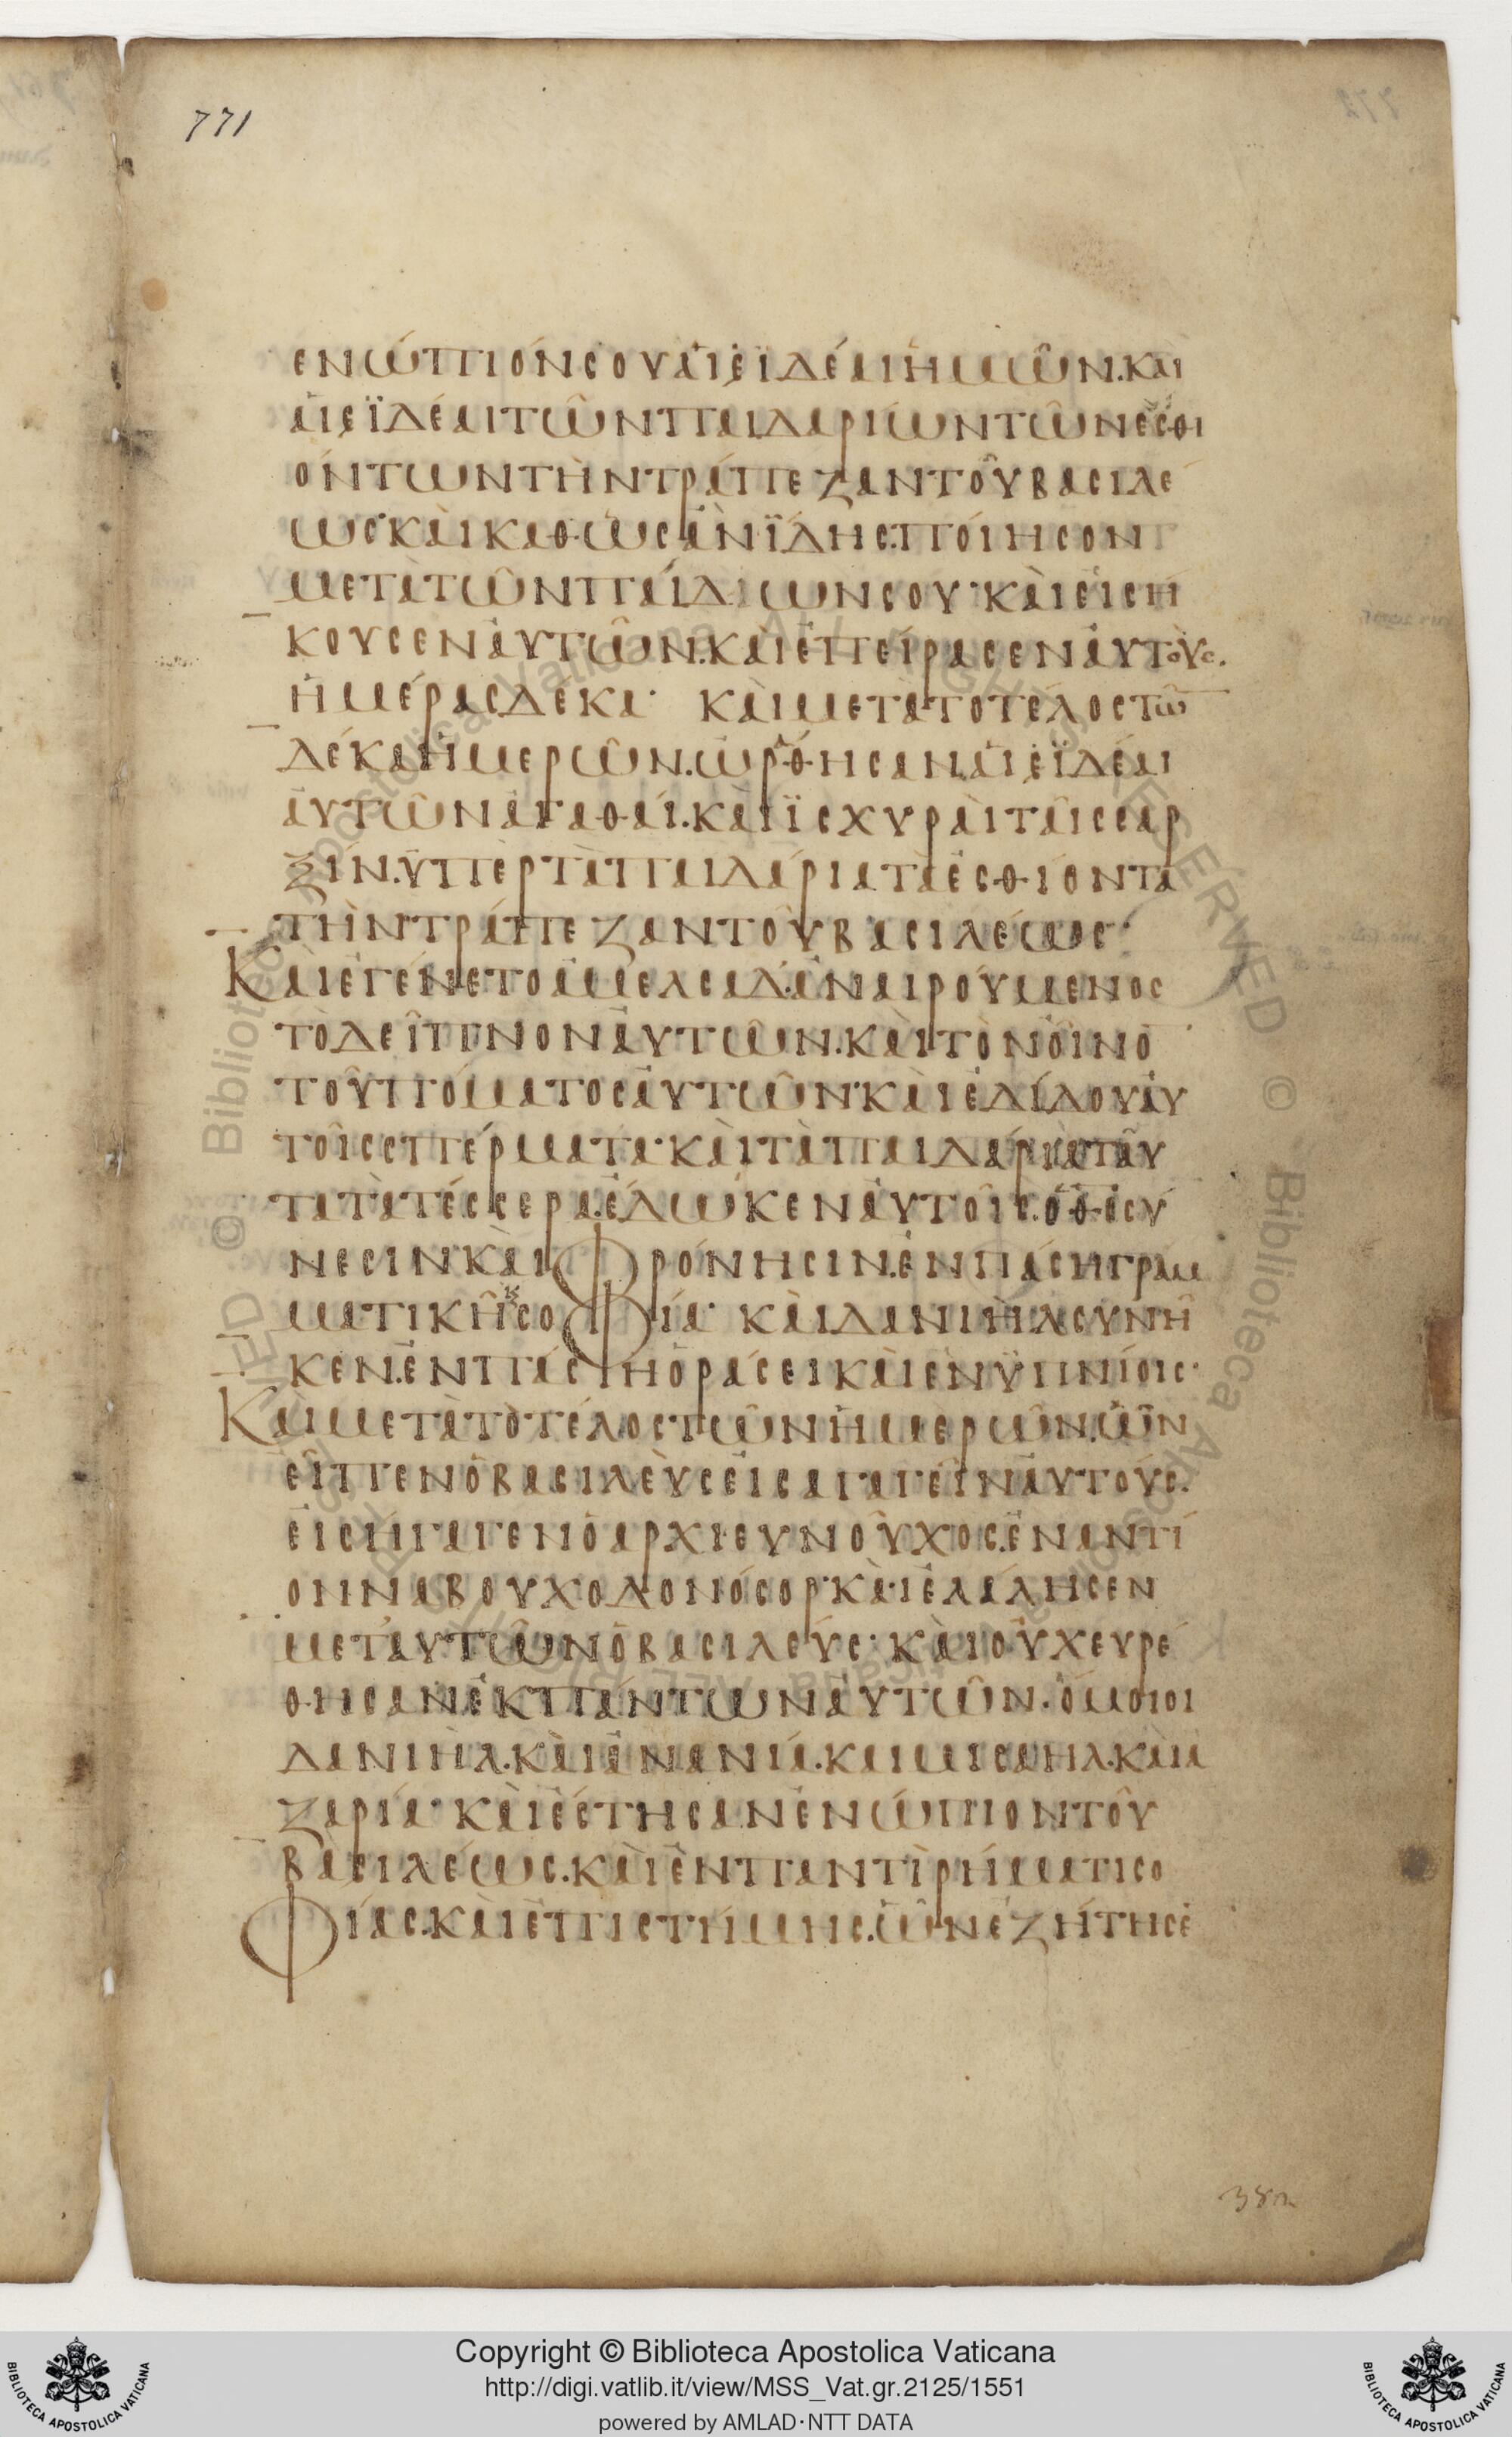 771
ἐνώπιόν σου αἱ εἰδέαι ἡμῶν. καὶ
αἱ εἰδέαι τῶν παιδαρίων τῶν ἐσθι
όντων τὴν τράπεζαν τοῦ βασιλέ
ως· καὶ καθὼς ἂν ἴδῃς. ποίησον
μετὰ τῶν παιδίων σου· καὶ εἰσή
κουσεν αὐτῶν. καὶ ἐπείρασεν αὐτοὺς.
ἡμέρας δέκα· καὶ μετὰ το τέλος τῶ̅
δέκα ἡμερῶν. ὡράθησαν αἱ εἰδέαι
αὐτῶν ἀγαθαί. καὶ ἰσχυραὶ ταῖς σαρ
ξίν. ὑπὲρ τὰ παιδάρια τὰ ἐσθίοντα
τὴν τράπεζαν τοῦ βασιλέως·
Καὶ ἐγένετο ἀμελσαδ· ἀναιρούμενος
τὸ δεῖπνον αὐτῶν. καὶ τὸν οἶνο̅
τοῦ πόματος αὐτῶν· καὶ ἐδίδου αὐ
τοῖς σπέρματα· καὶ τὰ παιδάρια ταῦ
τα τὰ τέσσερα. ἔδωκεν αὐτοῖς. ὁ θ̅ς̅ σύ
νεσιν καὶ φρόνησιν. ἐν πάσῃ γραμ
ματικῇ ϗ σοφία· καὶ δανιὴλ συνῆ
κεν. ἐν πάσῃ ὁράσει καὶ ἐν ὑπνίοις·
Καὶ μετὰ τὸ τέλος τῶν ἡμερῶν. ὧν
εἶπεν ὁ βασιλεὺς εἰσαγαγεῖν αὐτούς.
εἰσήγαγεν ὁ αρχιευνοῦχος. ἐναντί
ον ναβουχοδονόσορ· καὶ ἐλάλησεν
μετ᾽ αυτῶν ὁ βασιλεύς· καὶ οὐχ ευρέ
θησαν ἐκ πάντων αὐτῶν. ὅμοιοι
δανιήλ. καὶ ἀνανία. και μισαηλ. καὶ α
ζαρία· καὶ ἔστησαν ἐνώπιον τοῦ
βασιλέως. καὶ ἐν παντὶ ρήματι σο
φίας. καὶ ἐπιστήμης. ὧν ἐζήτησε̅
Copyright © Biblioteca Apostolica Vaticana
http://digi.vatlib.it/view/MSS_Vat.gr.2125/1551
powered by AMLAD·NTT DATA
BIBLIOTECA APOSTOLICA VATICANA
BIBLIOTECA APOSTOLICA VATICANA